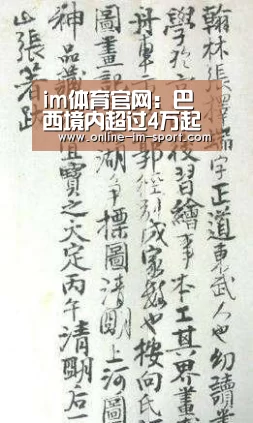 im体育官网：巴
西境内超过4万起
- www.online-im-sport.com -
翰林張擇端字正道東武人也幼讀
學於後習繪事本工其界畫
舟車郭徑別成家數也按向氏
圖畫記湖爭標圖清明上河圖
神品藏宜寶之大定丙午清明后一
山張著跋